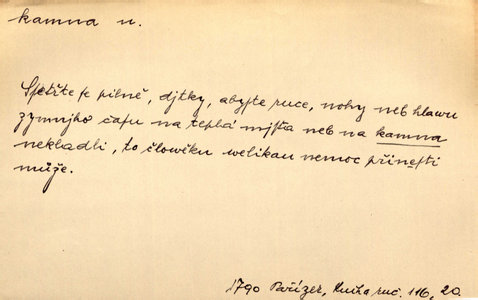 kamna n.
Sſetřte ſe pilně, djtky, abyſte ruce, nohy neb hlawu
zymnjho čaſu na teplá mjſta neb na kamna
nekladli, to člowěku welikau nemoc přineſti
může.
1790 Pařízek, Kniha ruč. 116, 20.